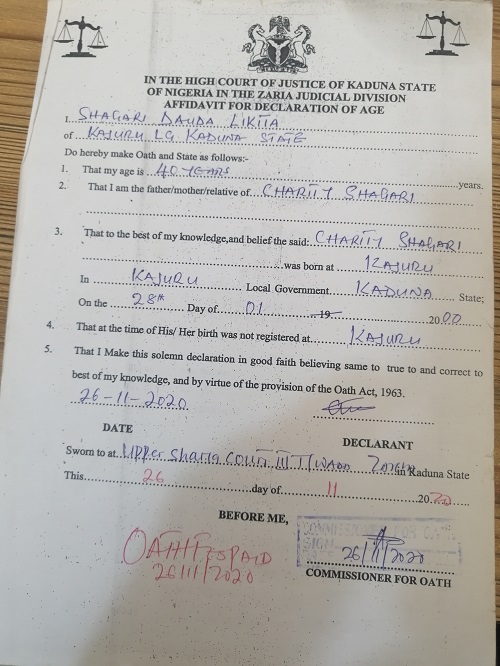 IN THE HIGH COURT OF JUSTICE OF KADUNA STATE
OF NIGERIA IN THE ZARIA JUDICIAL DIVISION
AFFIDAVIT FOR DECLARATION OF AGE
I. SHAGARI DAUDA LIKITA
of KAJURU LG KADUNA STATE
Do hereby make Oath and State as follows:-
1. That my age is 40 YEARS years.
2. That I am the father/mother/relative of CHARITY SHAGARI
3. That to the best of my knowledge,and belief the said: CHARITY SHAGARI
was born at KAJURU
In KAJURU Local Government KADUNA State;
On the 28th Day of 01 19 2000
4. That at the time of His/ Her birth was not registered at KAJURU
5. That I Make this solemn declaration in good faith believing same to true to and correct to
best of my knowledge, and by virtue of the provision of the Oath Act, 1963.
26-11-2020
DATE DECLARANT
Sworn to at Upper Sharia Court III T/WADA ZARIA in Kaduna State
This 26 day of 11 2020
BEFORE ME,
COMMISSIONER FOR OATH
OATH FES PAID
26/11/2020
26/11/2020
COMMISSIONER FOR OATH